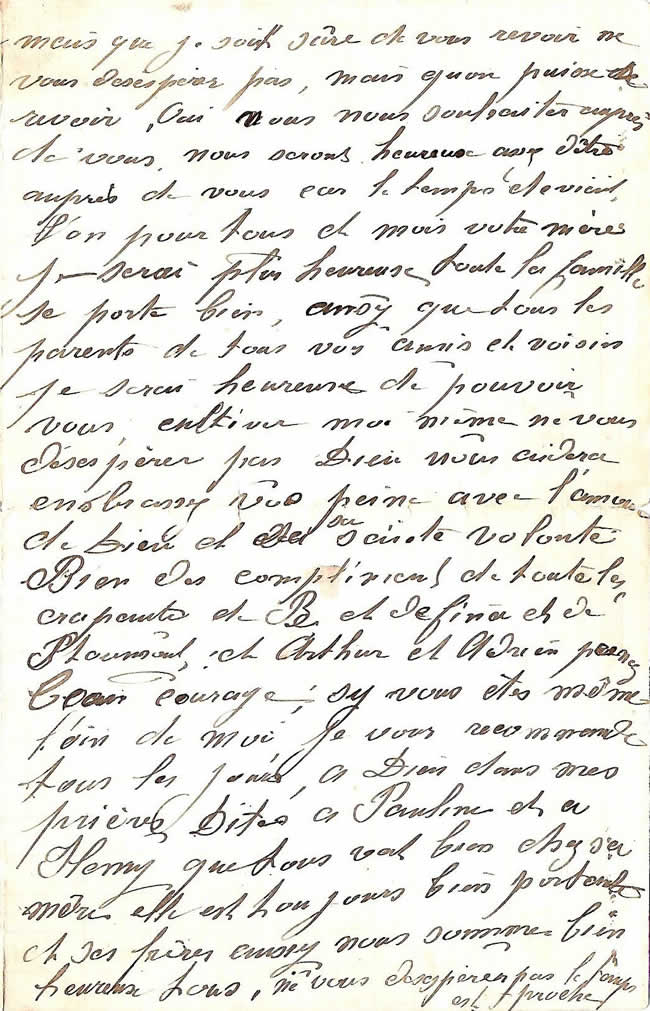 mais que je soit sûre de vous revoir ne
vous desespérer pas, mais quon puisse se
revoir, Oui vous nous souhaiter auprès
de vous, nous serons heureuse avez d'être
auprès de vous car le temps et
L'on pour tous et mois votre mères
je serai plus heureuse toute la famille
se porte bien, ausÿ que tous les
parents de tous vos amis et voisin
je serai heureuse de pouvoir
vous cultiver moi même ne vous
désespèrer pas Dieu vous aidera
enbrassez vos peine avec l'amour
de Dieu et sa sainte volonté
Bien des compliment de toute les
de B. et defina et de
et Arthur et Adrien prenez
bean courage, sy vous êtes même
loin de moi je vous recommande
tous les jours, a Dieu dans mes
prières, Dites a Pauline et a
Henry que tous vat bien chez sa
mère elle est toujours bien portante
et ses frères aussy nous somme bien
heureuse tous, ne vous desespèrer pas le temps
est proche